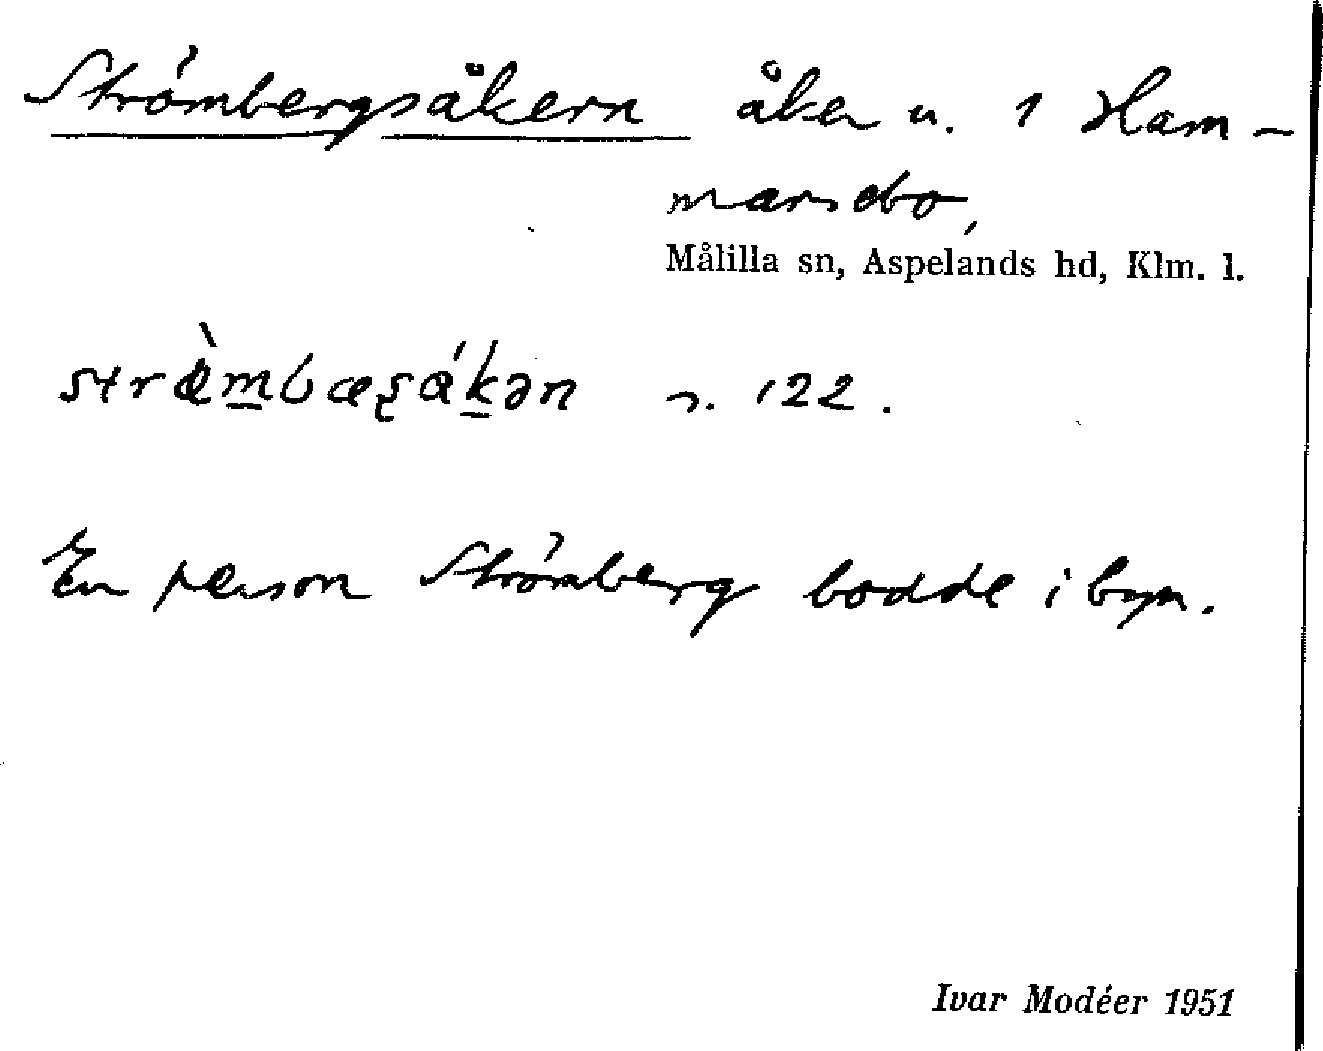 Strömbergsåkern åker u. 1 Ham-
marsebo,
Målilla sn, Aspelands hd, Klm. l.
strœ̀m̲bæʂák̲ən s. 122.
En person Strömberg bodde i byn.
Ivar Modéer 1951